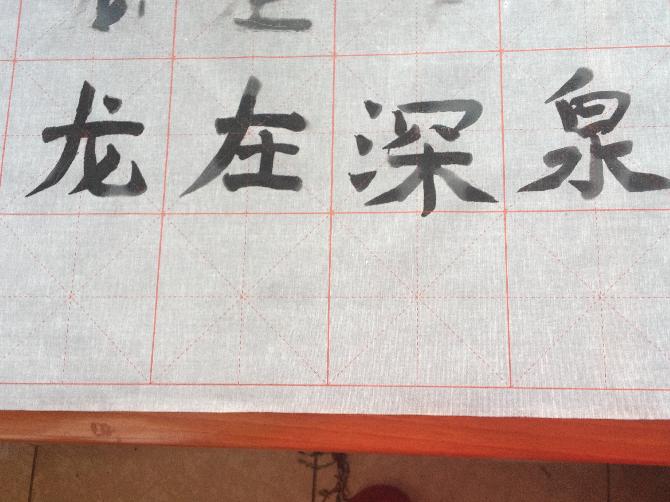 龙在深泉